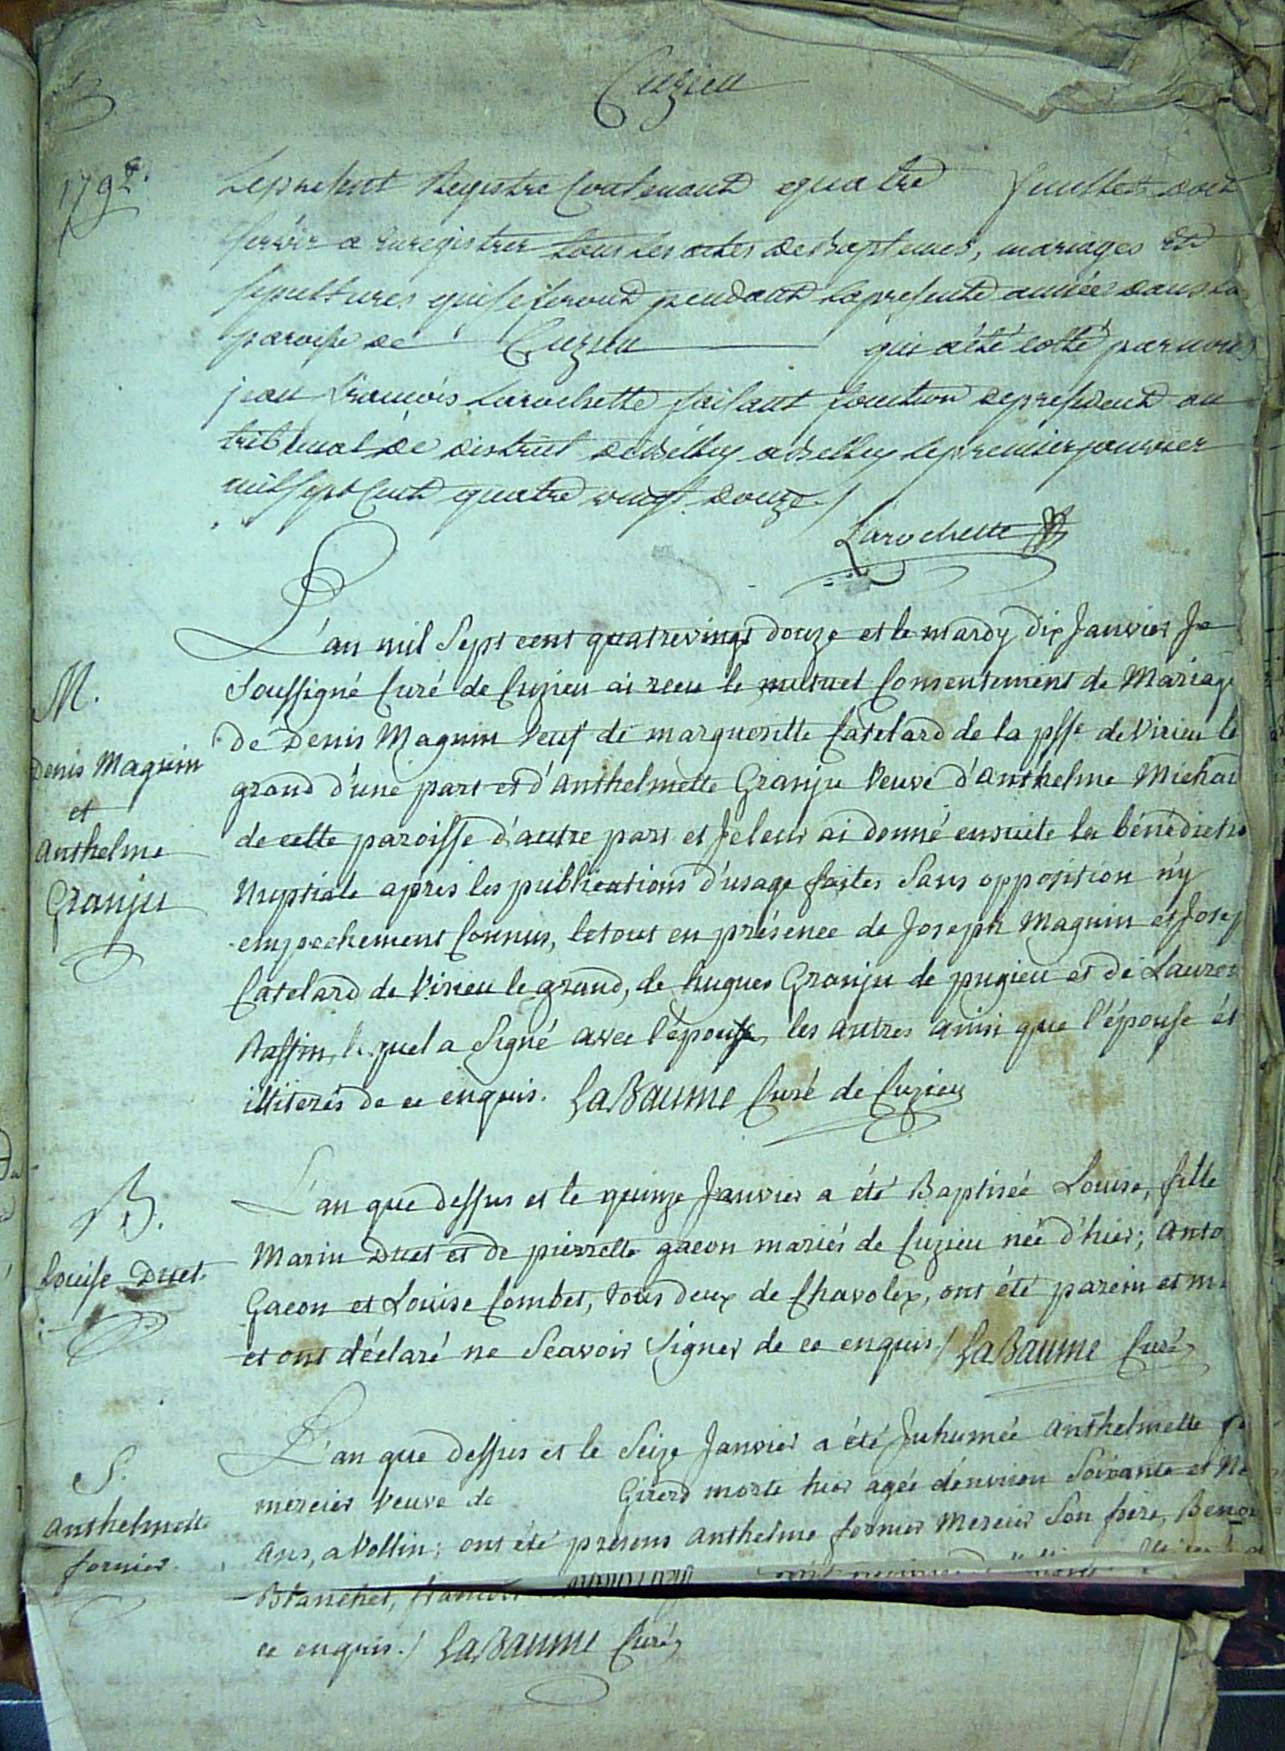 Cuzieu
1792.
Lepresent Registre Contenant quatre feuillets doit
servir a enregistrer tous les actes de Baptemes, mariages et
sepultures qui se feront pendant la presente année dans la
paroisse de Cuzieu qui a été cotté par nous
jean françois Larochette faisant fonction de president au
tribunal de district de Belley a Belley le premier janvier
mil sept Cent quatre vingt douze /
Larochette
L'an mil Sept cent quatrevingt douze et le mardy dix Janvier Je
Soussigné Curé de Cuzieu ai receu le mutuel Consentement de Mariage
M.
de Denis Magnin Veuf de margueritte Catelard de la psse de Virieu le
Denis Magnin
grand d'une part et d'Anthelmette Granju Veuve d'Anthelme Michau
et
Anthelme
de cette paroisse d'autre part et Je leur ai donné ensuite la bénédictio
Granju
Nuptiale après les publications d'usage faites Sans opposition n'y
empechement Connus, le tout en présence de Joseph Magnin et Josep
Catelard de Virieu le grand, de hugues Granju de pugieu et de Lauren
Raffin, lequel a Signé avec l'époux, les autres ainsi que l'épouse ét
illiterés de ce enquis. LaBaume Curé de Cuzieu
B.
L'an que dessus et le quinze Janvier a été Baptisée Louise, fille
Louise Duet
Marin Duet et de pierrette gacon mariés de Cuzieu née d'hier; Anto
Gacon et Louise Combet, tous deux de Chavolex, ont été parein et m
et ont déclaré ne Scavoir Signer de ce enquis / LaBaume Curé
S.
L'an que dessus et le Seize Janvier a été Inhumée Anthelmette fo
Anthelmette
mercier Veuve de Girerd morte hier agée d'environ Soixante et
fornier
Ans, a Vollin; ont été présens Anthelme fornier Mercier Son frère, Beno
Blanchet,
ce enquis. / LaBaume Curé